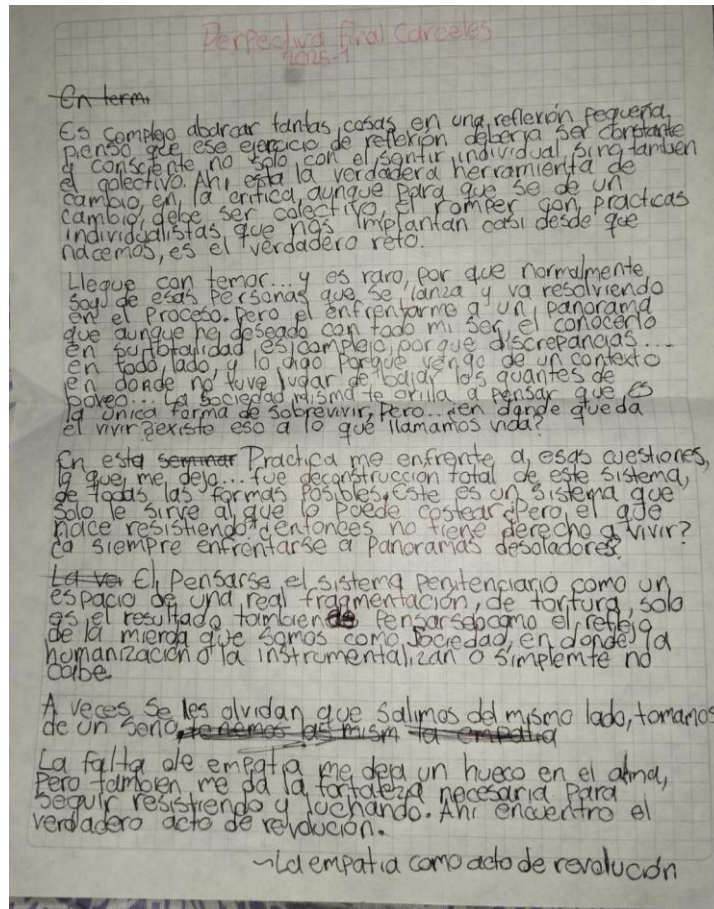 Perpectiva final Carceles
2025-1
En termi
Es complejo abarcar tantas cosas en una reflexión pequeña,
pienso que ese ejercicio de reflexión deberia ser constante
y consciente no solo con el sentir individual sino tambien
el colectivo. Ahi esta la verdadera herramienta de
cambio, en la critica, aunque para que se de un
cambio, debe ser colectivo, El romper con practicas
individualistas, que nos implantan casi desde que
nacemos, es el verdadero reto.
Llegue con temor... y es raro, por que normalmente,
soy de esas personas que se lanza y va resolviendo
en el proceso. Pero el enfrentarme a un panorama
que aunque he deseado con todo mi ser, el conocerlo
en su totalidad es complejo, porque discrepancias...
en todo lado, y lo digo porque vengo de un contexto
en donde no tuve lugar de bajar los guantes de
boxeo... La sociedad misma te orilla a pensar que es
la única forma de sobrevivir, Pero... ¿en donde queda
el vivir? ¿existe eso a lo que llamamos vida?
En esta seminar Practica me enfrente a esas cuestiones,
lo que me dejo... fue deconstrucción total de este sistema,
de todas las formas posibles, Este es un sistema que
solo le sirve al que lo puede costear ¿Pero, el que
nace resistiendo? ¿entonces no tiene derecho a vivir?
¿a siempre enfrentarse a panoramas desoladores?
La ve El, Pensarse el sistema penitenciario como un
espacio de una real fragmentación, de tortura, solo
es el resultado tambien de Pensarse como el reflejo
de la mierda que somos como sociedad, en donde la
humanización o la instrumentalizan o simplemte no
cabe.
A veces se les olvidan que salimos del mismo lado, tomamos
de un seno, tenemos las mism la empatia
La falta de empatia me deja un hueco en el alma,
Pero tambien me da la fortaleza necesaria para
seguir resistiendo y luchando. Ahi encuentro el
verdadero acto de revolución.
~La empatia como acto de revolución